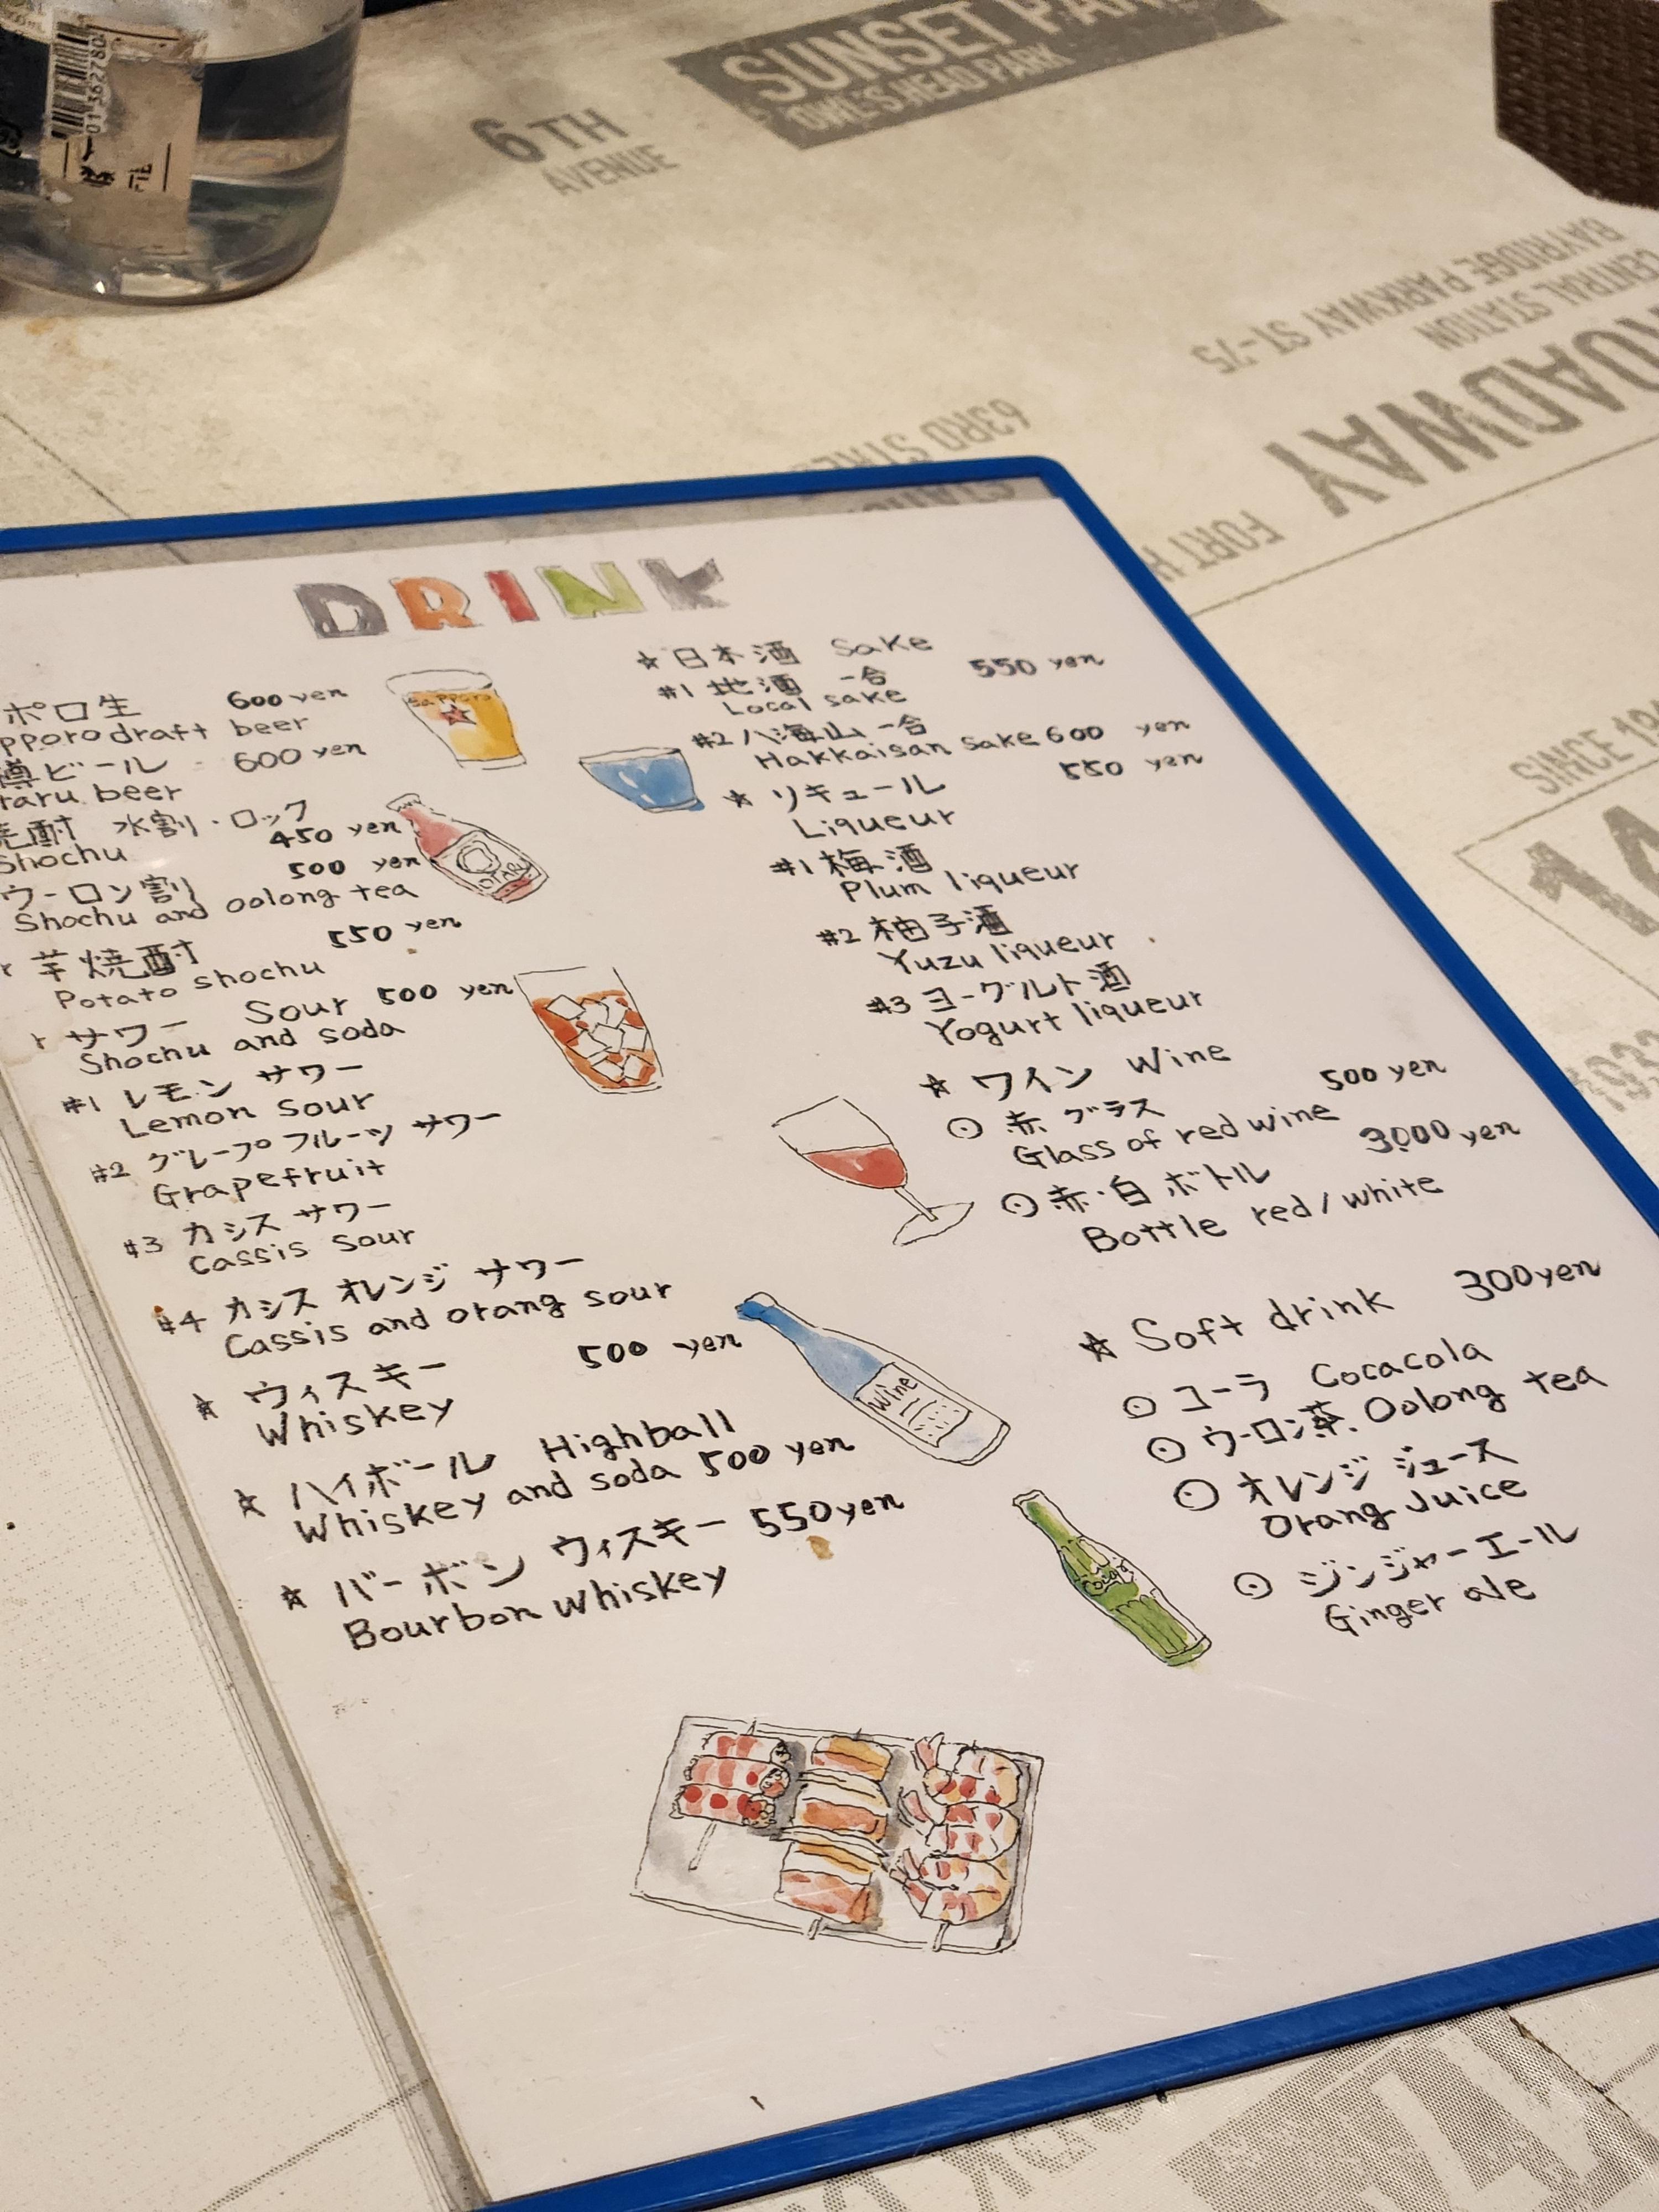 SUNSET PARK
OWL'S HEAD PARK
6TH
AVENUE
BAYRIDGE PARKWAY ST-75
CENTRAL STATION
ROADWAY
63RD
FORT H
SINCE
14
DRINK
ポロ生 600 yen
pporo draft beer
樽ビール 600 yen
taru beer
焼酎 水割・ロック
Shochu 450 yen
500 yen
ウーロン割
Shochu and oolong tea
550 yen
芋焼酎
Potato shochu
サワー Sour 500 yen
Shochu and soda
#1 レモン サワー
Lemon sour
#2 グレープフルーツ サワー
Grapefruit
#3 カシス サワー
Cassis sour
#4 カシス オレンジ サワー
Cassis and orang sour
☆ ウィスキー 500 yen
Whiskey
☆ ハイボール Highball
Whiskey and soda 500 yen
☆ バーボン ウィスキー 550yen
Bourbon whiskey
☆ 日本酒 Sake
#1 地酒 一合 550 yen
Local sake
#2 八海山 一合
Hakkaisan sake 600 yen
☆ リキュール 550 yen
Liqueur
#1 梅酒
Plum liqueur
#2 柚子酒
Yuzu liqueur
#3 ヨーグルト酒
Yogurt liqueur
☆ ワイン Wine
⊙ 赤 グラス 500 yen
Glass of red wine
⊙ 赤・白 ボトル 3000 yen
Bottle red / white
☆ Soft drink 300yen
⊙ コーラ Cocacola
⊙ ウーロン茶 Oolong tea
⊙ オレンジ ジュース
Orang Juice
⊙ ジンジャーエール
Ginger ale
Sapporo
OTARU
Wine